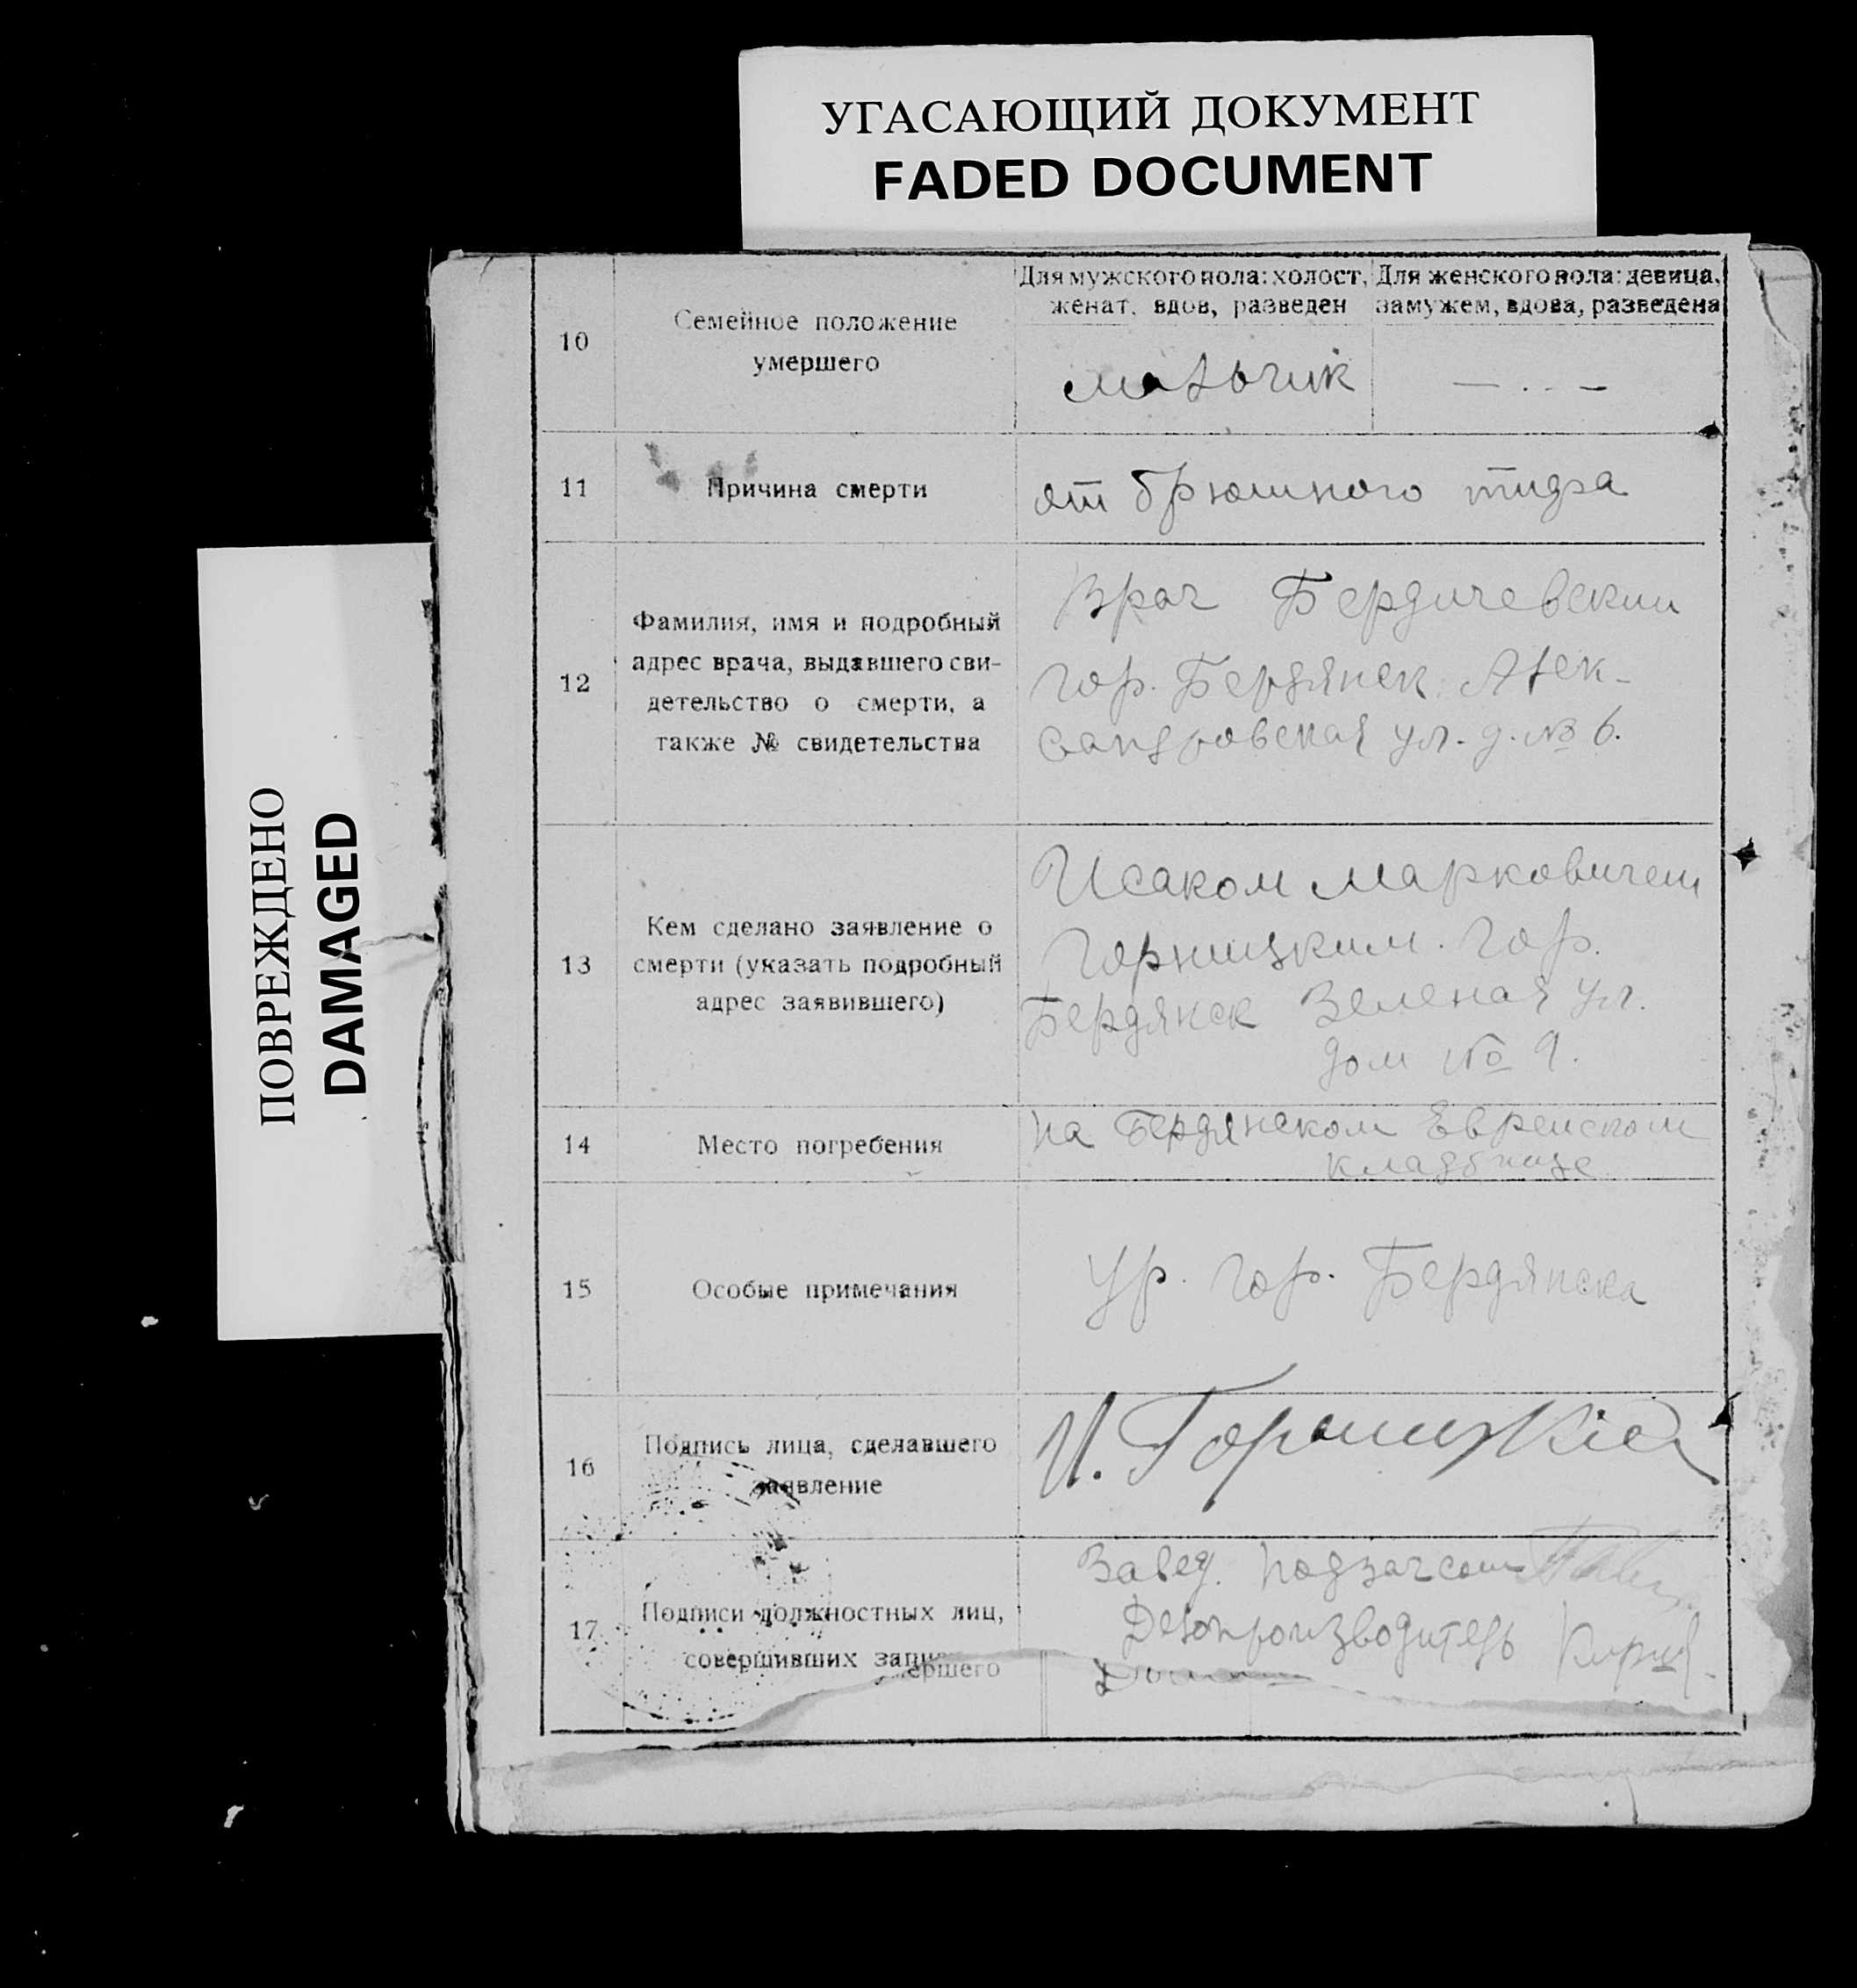 УГАСАЮЩИЙ ДОКУМЕНТ
FADED DOCUMENT
ПОВРЕЖДЕНО
DAMAGED
10
Семейное положение
умершего
Для мужского пола: холост,
женат, вдов, разведен
Для женского пола: девица,
замужем, вдова, разведена
мальчик
— . . —
11
Причина смерти
от брюшного тифа
12
Фамилия, имя и подробный
адрес врача, выдавшего сви-
детельство о смерти, а
также № свидетельства
Врач Бердичевский
гор. Бердянск Алек-
сандровская ул. д. № 6.
13
Кем сделано заявление о
смерти (указать подробный
адрес заявившего)
Исаком Марковичем
Горницким. Гор.
Бердянск Зеленая ул.
дом № 9.
14
Место погребения
на Бердянском Еврейском
кладбище
15
Особые примечания
Ур. гор. Бердянска
16
Подпись лица, сделавшего
заявление
И. Горницкій
17
Подписи должностных лиц,
совершивших запи
ершего
Завед. подзагсом
Делопроизводитель